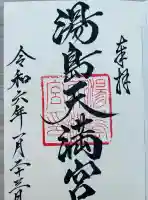 奉拝
湯島天満宮
令和六年一月二十三日